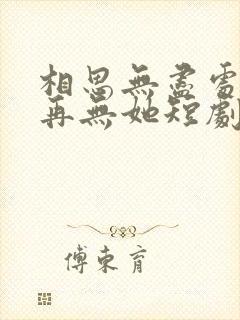 相思無盡處
再無她短劇
傅東育